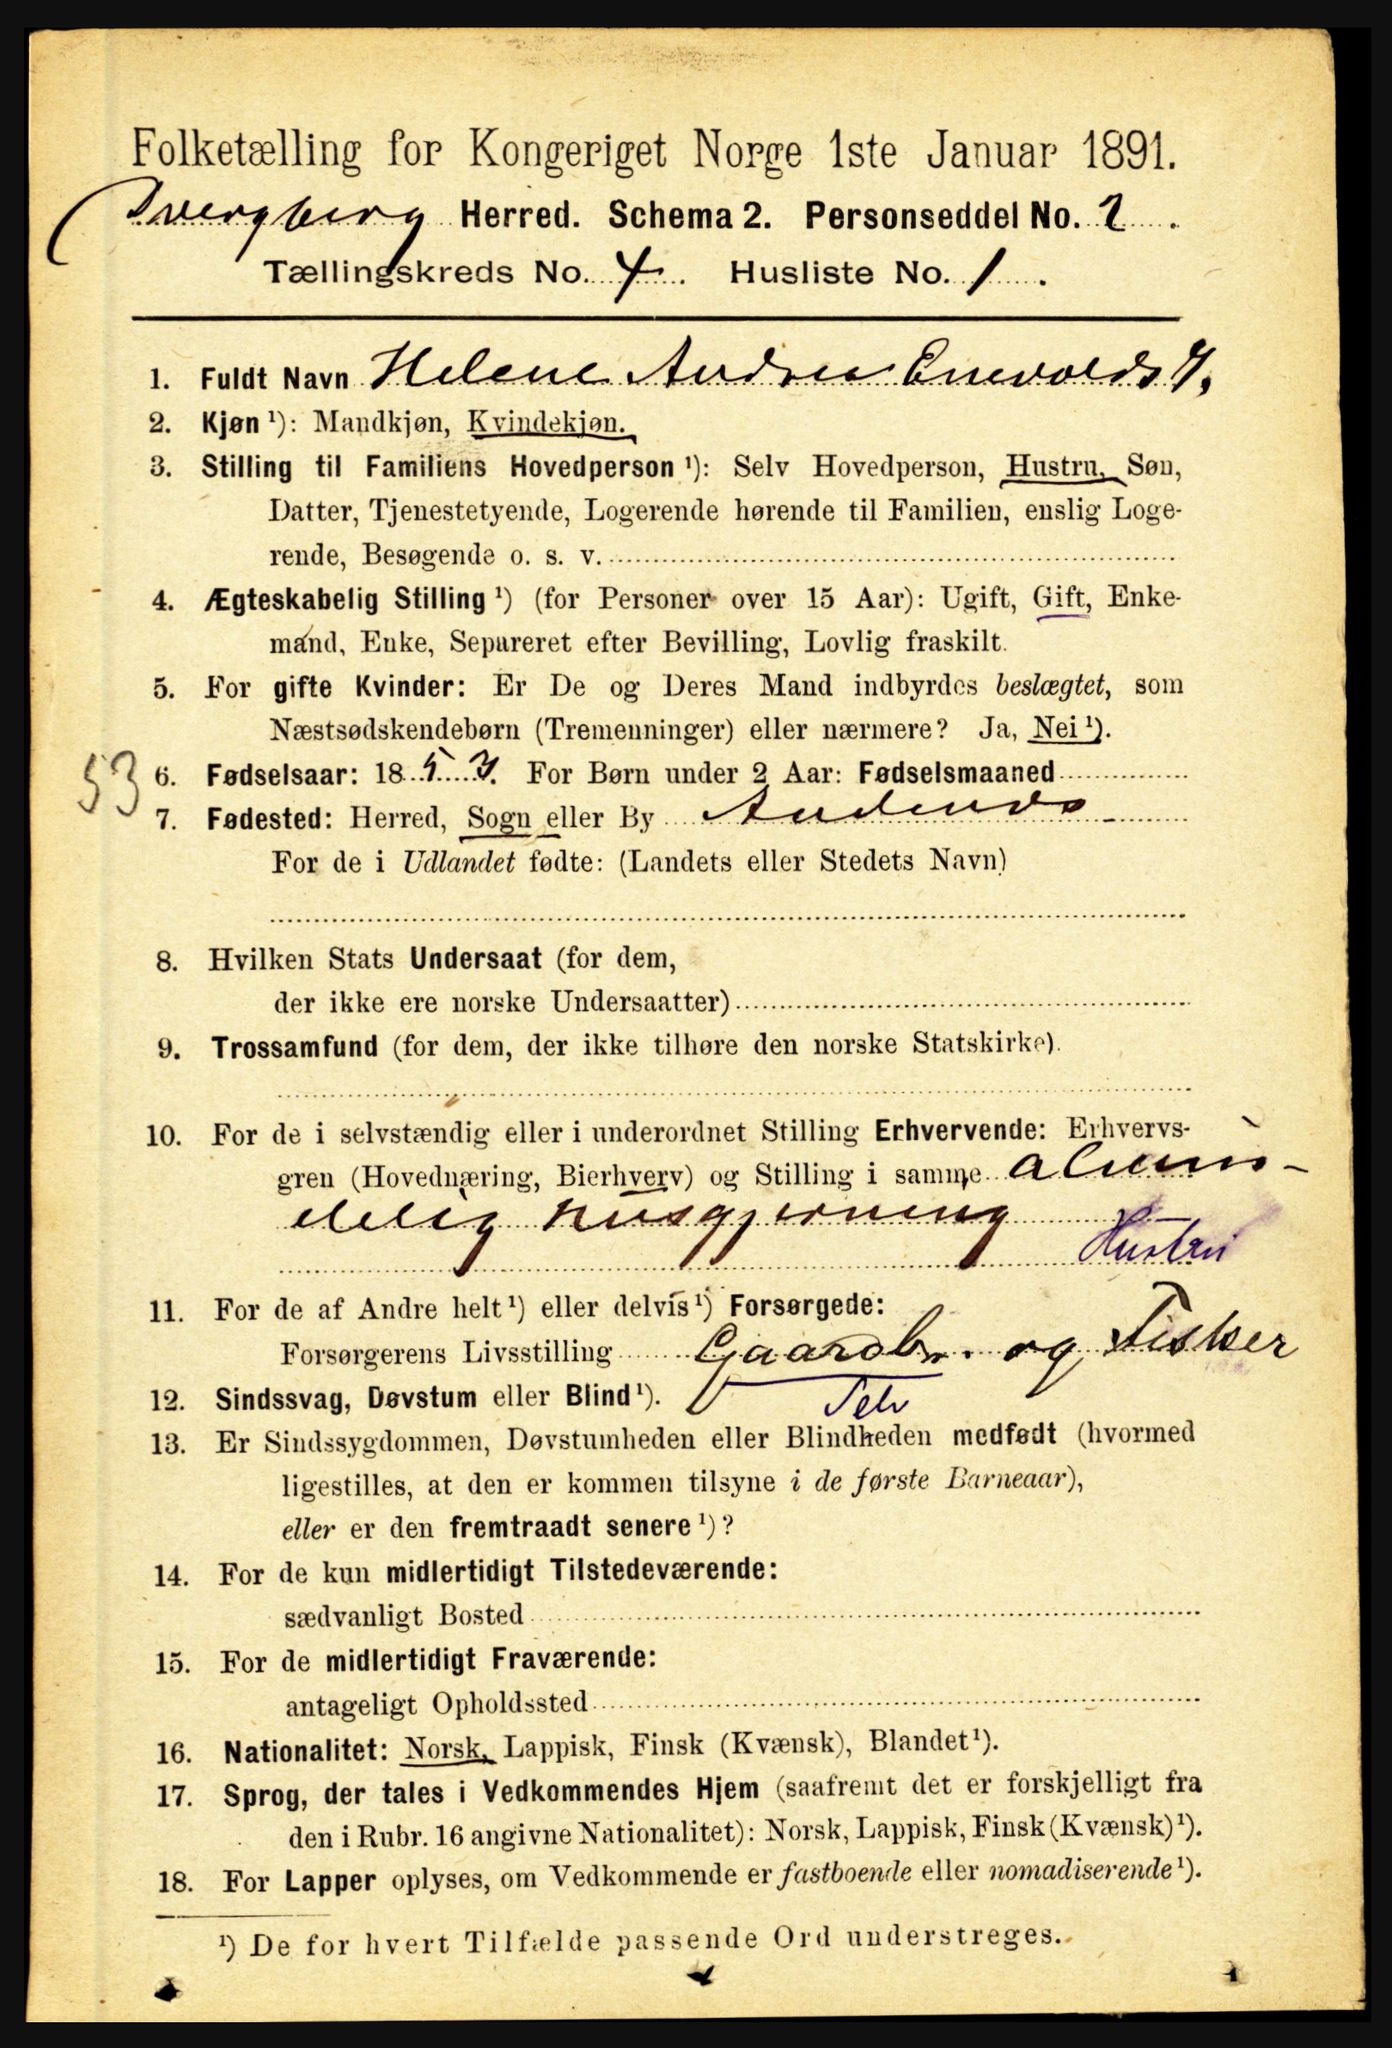 Folketælling for Kongeriget Norge 1ste Januar 1891.
Dvergberg Herred. Schema 2. Personseddel No. 2.
Tællingskreds No. 4. Husliste No. 1.
1. Fuldt Navn Helene Andrea Enevolds
2. Kjøn ¹): Mandkjøn, Kvindekjøn.
3. Stilling til Familiens Hovedperson ¹): Selv Hovedperson, Hustru, Søn,
Datter, Tjenestetyende, Logerende hørende til Familien, enslig Loge-
rende, Besøgende o. s. v.
4. Ægteskabelig Stilling ¹) (for Personer over 15 Aar): Ugift, Gift, Enke-
mand, Enke, Separeret efter Bevilling, Lovlig fraskilt.
5. For gifte Kvinder: Er De og Deres Mand indbyrdes beslægtet, som
Næstsødskendebørn (Tremenninger) eller nærmere? Ja, Nei ¹).
53
6. Fødselsaar: 1853. For Børn under 2 Aar: Fødselsmaaned
7. Fødested: Herred, Sogn eller By Andenæs
For de i Udlandet fødte: (Landets eller Stedets Navn)
8. Hvilken Stats Undersaat (for dem,
der ikke ere norske Undersaatter)
9. Trossamfund (for dem, der ikke tilhøre den norske Statskirke).
10. For de i selvstændig eller i underordnet Stilling Erhvervende: Erhvervs-
gren (Hovednæring, Bierhverv) og Stilling i samme almin-
delig husgjerning
Hustru
11. For de af Andre helt ¹) eller delvis ¹) Forsørgede:
Forsørgerens Livsstilling Gaardbr. og Fisker
12. Sindssvag, Døvstum eller Blind ¹). Selv
13. Er Sindssygdommen, Døvstumheden eller Blindheden medfødt (hvormed
ligestilles, at den er kommen tilsyne i de første Barneaar),
eller er den fremtraadt senere ¹)?
14. For de kun midlertidigt Tilstedeværende:
sædvanligt Bosted
15. For de midlertidigt Fraværende:
antageligt Opholdssted
16. Nationalitet: Norsk, Lappisk, Finsk (Kvænsk), Blandet ¹).
17. Sprog, der tales i Vedkommendes Hjem (saafremt det er forskjelligt fra
den i Rubr. 16 angivne Nationalitet): Norsk, Lappisk, Finsk (Kvænsk) ¹).
18. For Lapper oplyses, om Vedkommende er fastboende eller nomadiserende ¹).
¹) De for hvert Tilfælde passende Ord understreges.